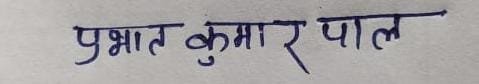 प्रभात कुमार पाल